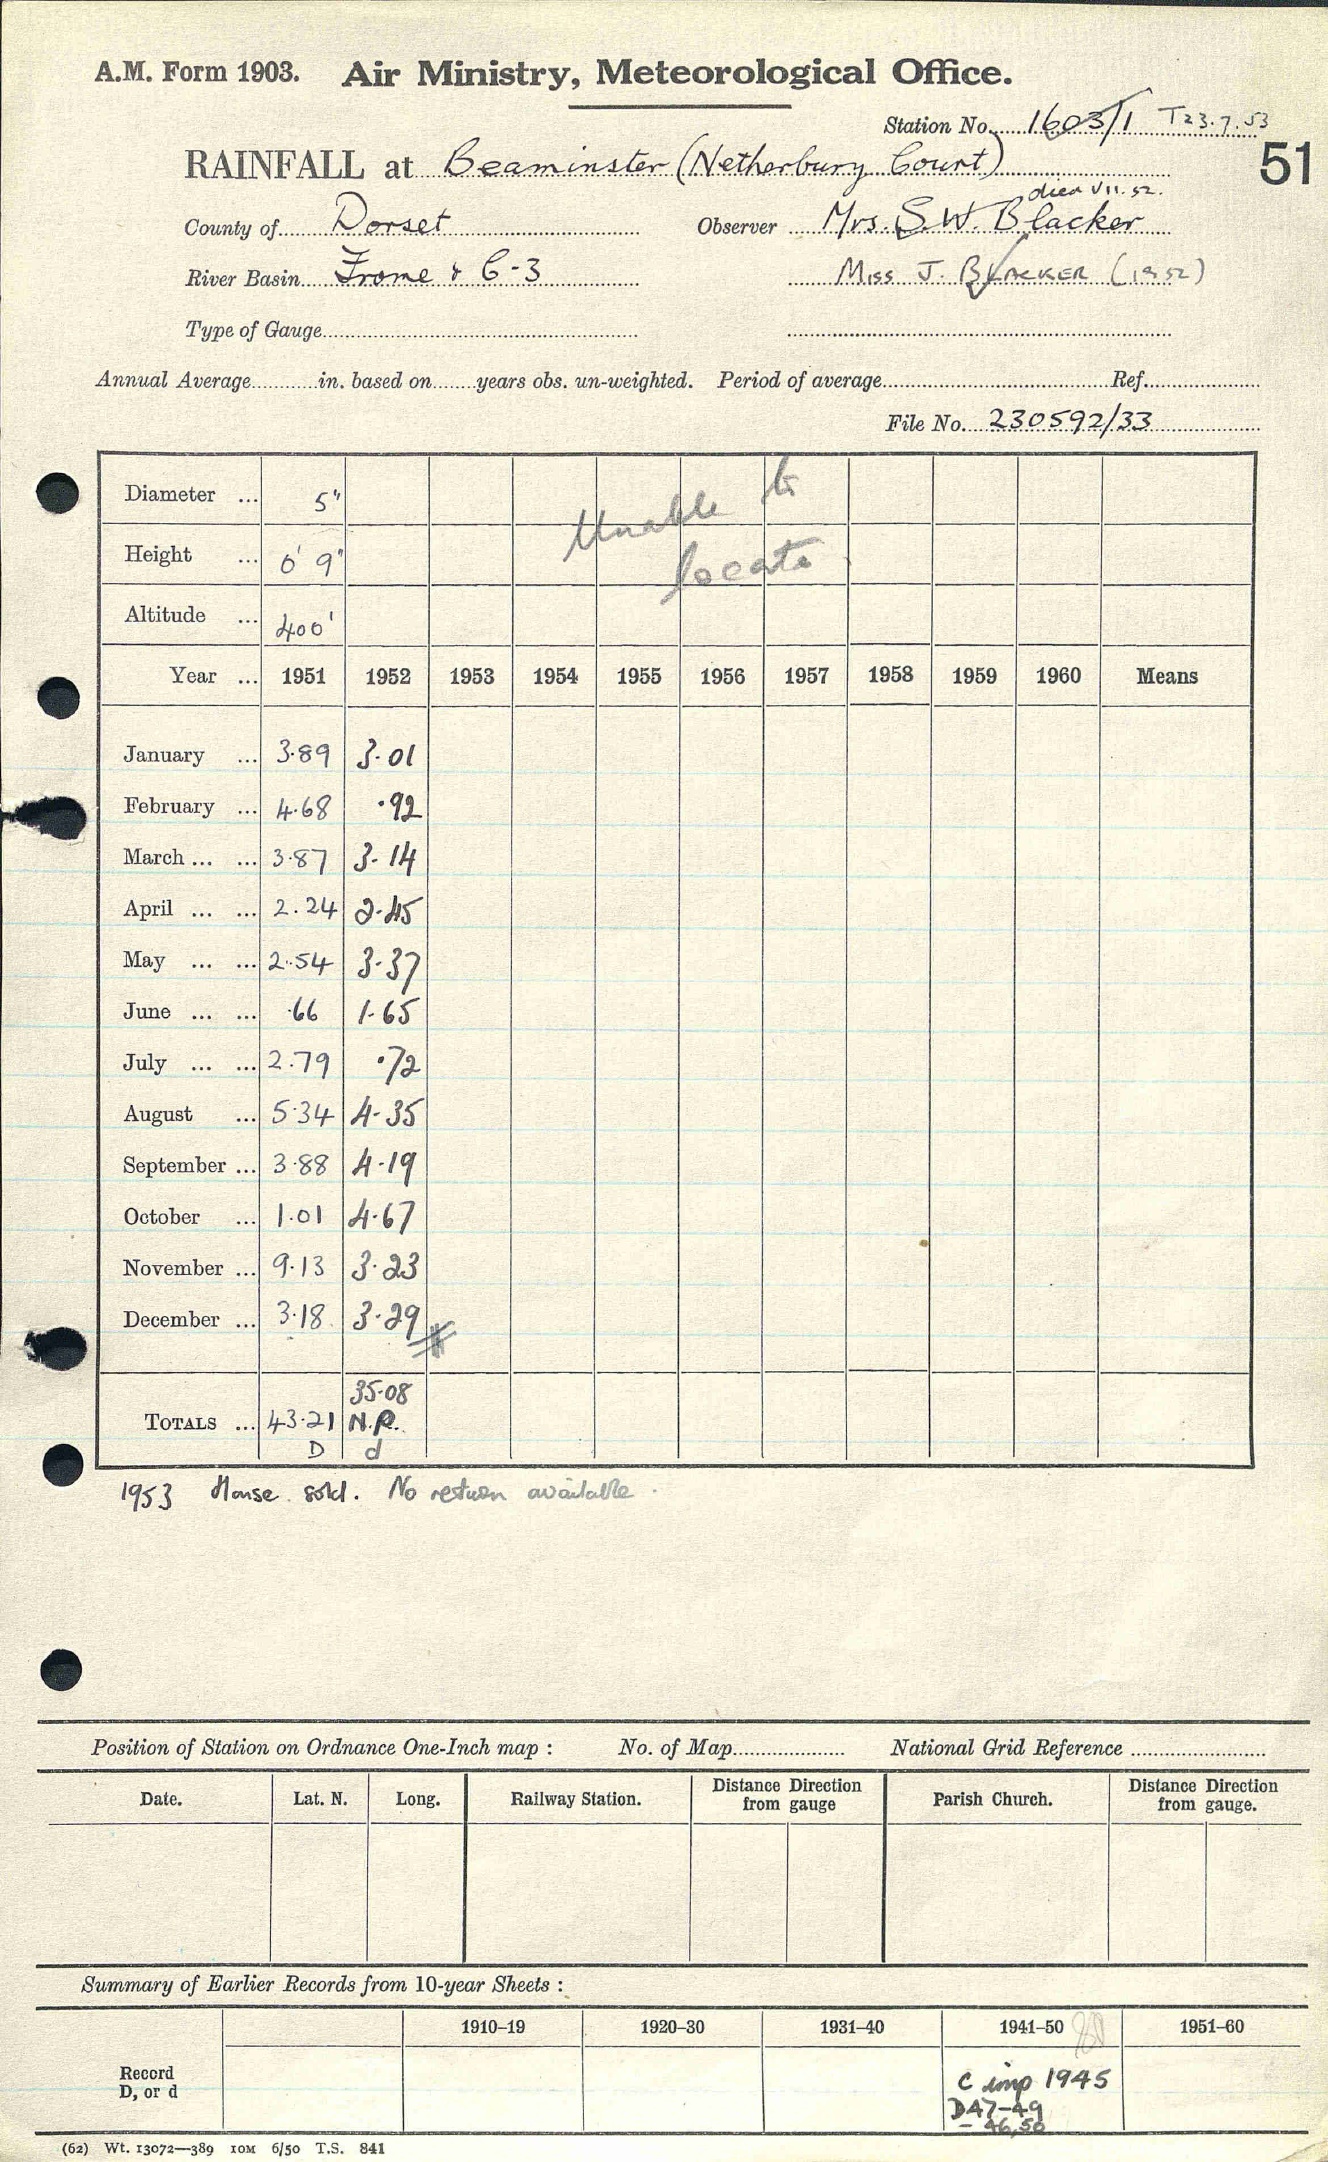 A.M. Form 1903. Air Ministry, Meteorological Office.
Station No. 1603/1 T23.7.53
RAINFALL at Beaminster (Netherbury Court) 51
died VII.52.
County of Dorset Observer Mrs. S.W. Blacker
River Basin Frome & C-3 Miss J. BLACKER (1952)
Type of Gauge
Annual Average in. based on years obs. un-weighted. Period of average Ref.
File No. 230592/33
Diameter ... 5"
Unable to
Height ... 0' 9"
locate
Altitude ... 400'
Year ... 1951 1952 1953 1954 1955 1956 1957 1958 1959 1960 Means
January ... 3.89 3.01
February ... 4.68 .92
March ... ... 3.87 3.14
April ... ... 2.24 2.45
May ... ... 2.54 3.37
June ... ... .66 1.65
July ... ... 2.79 .72
August ... 5.34 4.35
September ... 3.88 4.19
October ... 1.01 4.67
November ... 9.13 3.23
December ... 3.18 3.29
35.08
TOTALS ... 43.21 N.P.
D d
1953 House sold. No return available.
Position of Station on Ordnance One-Inch map : No. of Map National Grid Reference
Date. Lat. N. Long. Railway Station. Distance Direction from gauge Parish Church. Distance Direction from gauge.
Summary of Earlier Records from 10-year Sheets :
1910–19 1920–30 1931–40 1941–50 1951–60
Record
D, or d
C imp 1945
D47–49
– 46,50
(62) Wt. 13072—389 10M 6/50 T.S. 841